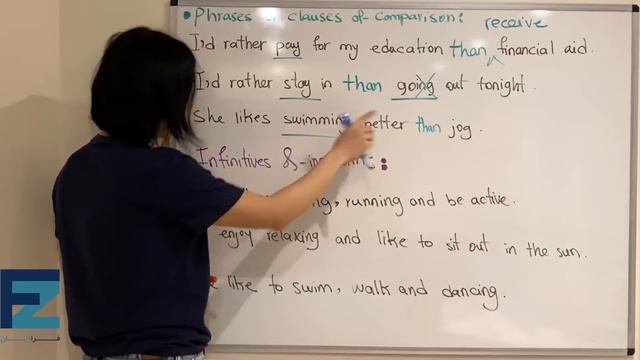 • Phrases clauses of comparison: receive
I,d rather pay for my education than financial aid.
I,d rather stay in than going out tonight.
She likes swimming better than jog.
Infinitives &-ing :
, running and be active.
enjoy relaxing and like to sit out in the sun.
like to swim, walk and dancing.
FZ